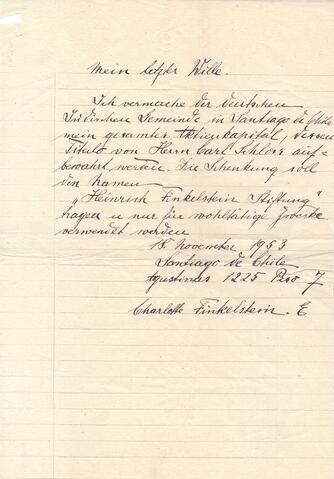 Mein letzter Wille.
Ich vermache der deutschen
Jüdischen Gemeinde in Santiago de Chile
mein gesamtes Aktienkapital, dessen
Titulo von Herrn Carl Schloss auf-
bewahrt werden. Die Schenkung soll
den Namen
„Heinrich Finkelstein Stiftung"
tragen u nur für wohltätige Zwecke
verwendet werden
18. November 1953
Santiago de Chile
Agustinas 1225 Piso 7
Charlotte Finkelstein. E